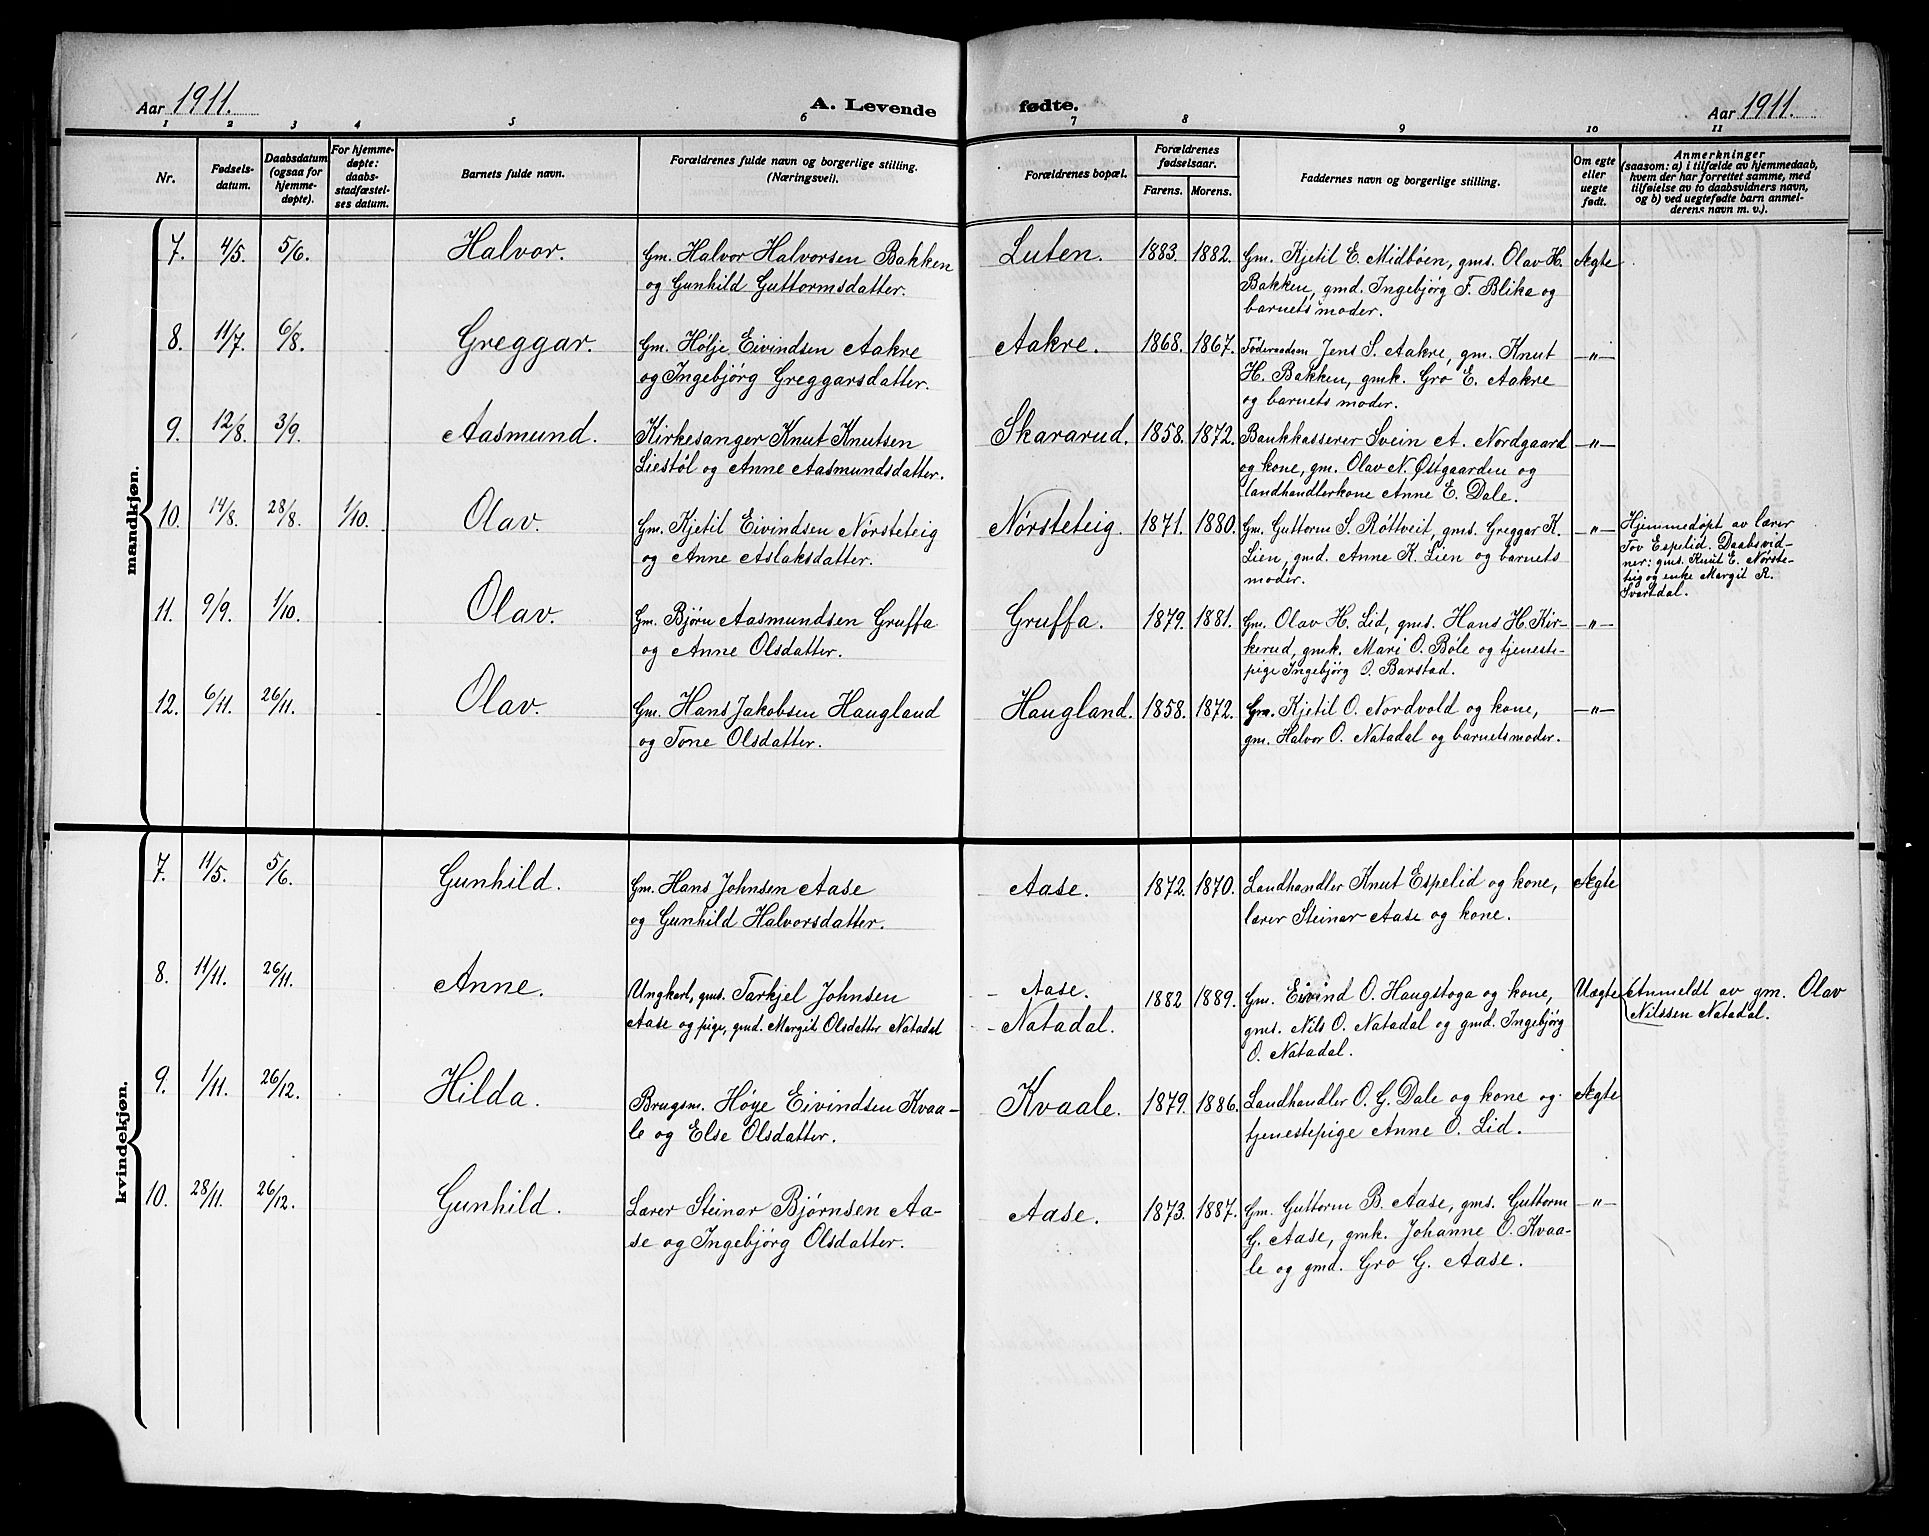 Aar 1911.
A. Levende
fødte.
Aar 1911.
1 2 3 4 5 6 7 8 9 10 11
Nr.
Fødsels-
datum.
Daabsdatum
(ogsaa for
hjemme-
døpte).
For hjemme-
døpte:
daabs-
stadfæstel-
ses datum.
Barnets fulde navn.
Forældrenes fulde navn og borgerlige stilling.
(Næringsvei).
Forældrenes bopæl.
Forældrenes
fødselsaar.
Farens. Morens.
Faddernes navn og borgerlige stilling.
Om egte
eller
uegte
født.
Anmerkninger
(saasom: a) i tilfælde av hjemmedaab,
hvem der har forrettet samme, med
tilføielse av to daabsvidners navn,
og b) ved uegtefødte barn anmel-
derens navn m. v.).
mandkjøn.
7. 4/5. 5/6. Halvor.
Gm. Halvor Halvorsen Bakken
og Gunhild Guttormsdatter.
Luten. 1883. 1882.
Gm. Kjetil E. Midbøen, gms. Olav H.
Bakken, gmd. Ingebjørg F. Blika og
barnets moder.
Ægte
8. 11/7. 6/8. Greggar.
Gm. Hølje Eivindsen Aakre
og Ingebjørg Greggarsdatter.
Aakre. 1868. 1867.
Føderaadsm Jens S. Aakre, gm. Knut
H. Bakken, gmk. Gro E. Aakre
og barnets moder.
-"-
9. 12/8. 3/9. Aasmund.
Kirkesanger Knut Knutsen
Liestøl og Anne Aasmundsdatter.
Skararud. 1858. 1872.
Bankkasserer Svein A. Nordgaard
og kone, gm. Olav N. Østgaarden og
landhandlerkone Anne E. Dale.
-"-
10. 14/8. 28/8. 1/10. Olav.
Gm. Kjetil Eivindsen Nørsteteig
og Anne Aslaksdatter.
Nørsteteig. 1871. 1880.
Gm. Guttorm S. Røttveit, gms. Greggar K.
Lien, gmd. Anne K. Lien og barnets
moder.
-"-
Hjemmedøpt av lærer
Tov Espelid. Daabsvid-
ner: gms. Knut E. Nørste-
teig og enke Margit R.
Svartdal.
11. 9/9. 1/10. Olav.
Gm. Bjørn Aasmundsen Gruffa
og Anne Olsdatter.
Gruffa. 1879. 1881.
Gm. Olav H. Lid, gms. Hans H. Kir-
kerud, gmk. Mari O. Bøle og tjeneste-
pige Ingebjørg O. Barstad.
-"-
12. 6/11. 26/11. Olav.
Gm. Hans Jakobsen Haugland
og Tone Olsdatter.
Haugland. 1858. 1872.
Gm. Kjetil O. Nordvold og kone,
gm. Halvor O. Natadal og barnets moder.
-"-
kvindekjøn.
7. 11/5. 5/6. Gunhild.
Gm. Hans Johnsen Aase
og Gunhild Halvorsdatter.
Aase. 1872. 1870.
Landhandler Knut Espelid og kone,
lærer Steinar Aase og kone.
Ægte
8. 11/11. 26/11. Anne.
Ungkarl, gms. Tarkjel Johnsen
Aase og pige, gmd. Margit Olsdatter Natadal
- Aase.
- Natadal.
1882 1889.
Gm. Eivind O. Haugstoga og kone,
gms. Nils O. Natadal og gmd. Ingebjørg
O. Natadal.
Uægte
Anmeldt av gm. Olav
Nilssen Natadal.
9. 1/11. 26/12. Hilda.
Brugsm. Høye Eivindsen Kvaa-
le og Else Olsdatter.
Kvaale. 1879. 1886.
Landhandler O. G. Dale og kone og
tjenestepige Anne O. Lid.
Ægte
10. 28/11. 26/12. Gunhild.
Lærer Steinar Bjørnsen Aa-
se og Ingebjørg Olsdatter.
Aase. 1873. 1887.
Gm. Guttorm B. Aase, gms. Guttorm
G. Aase, gmk. Johanne O. Kvaa-
le og gmd. Gro G. Aase.
-"-